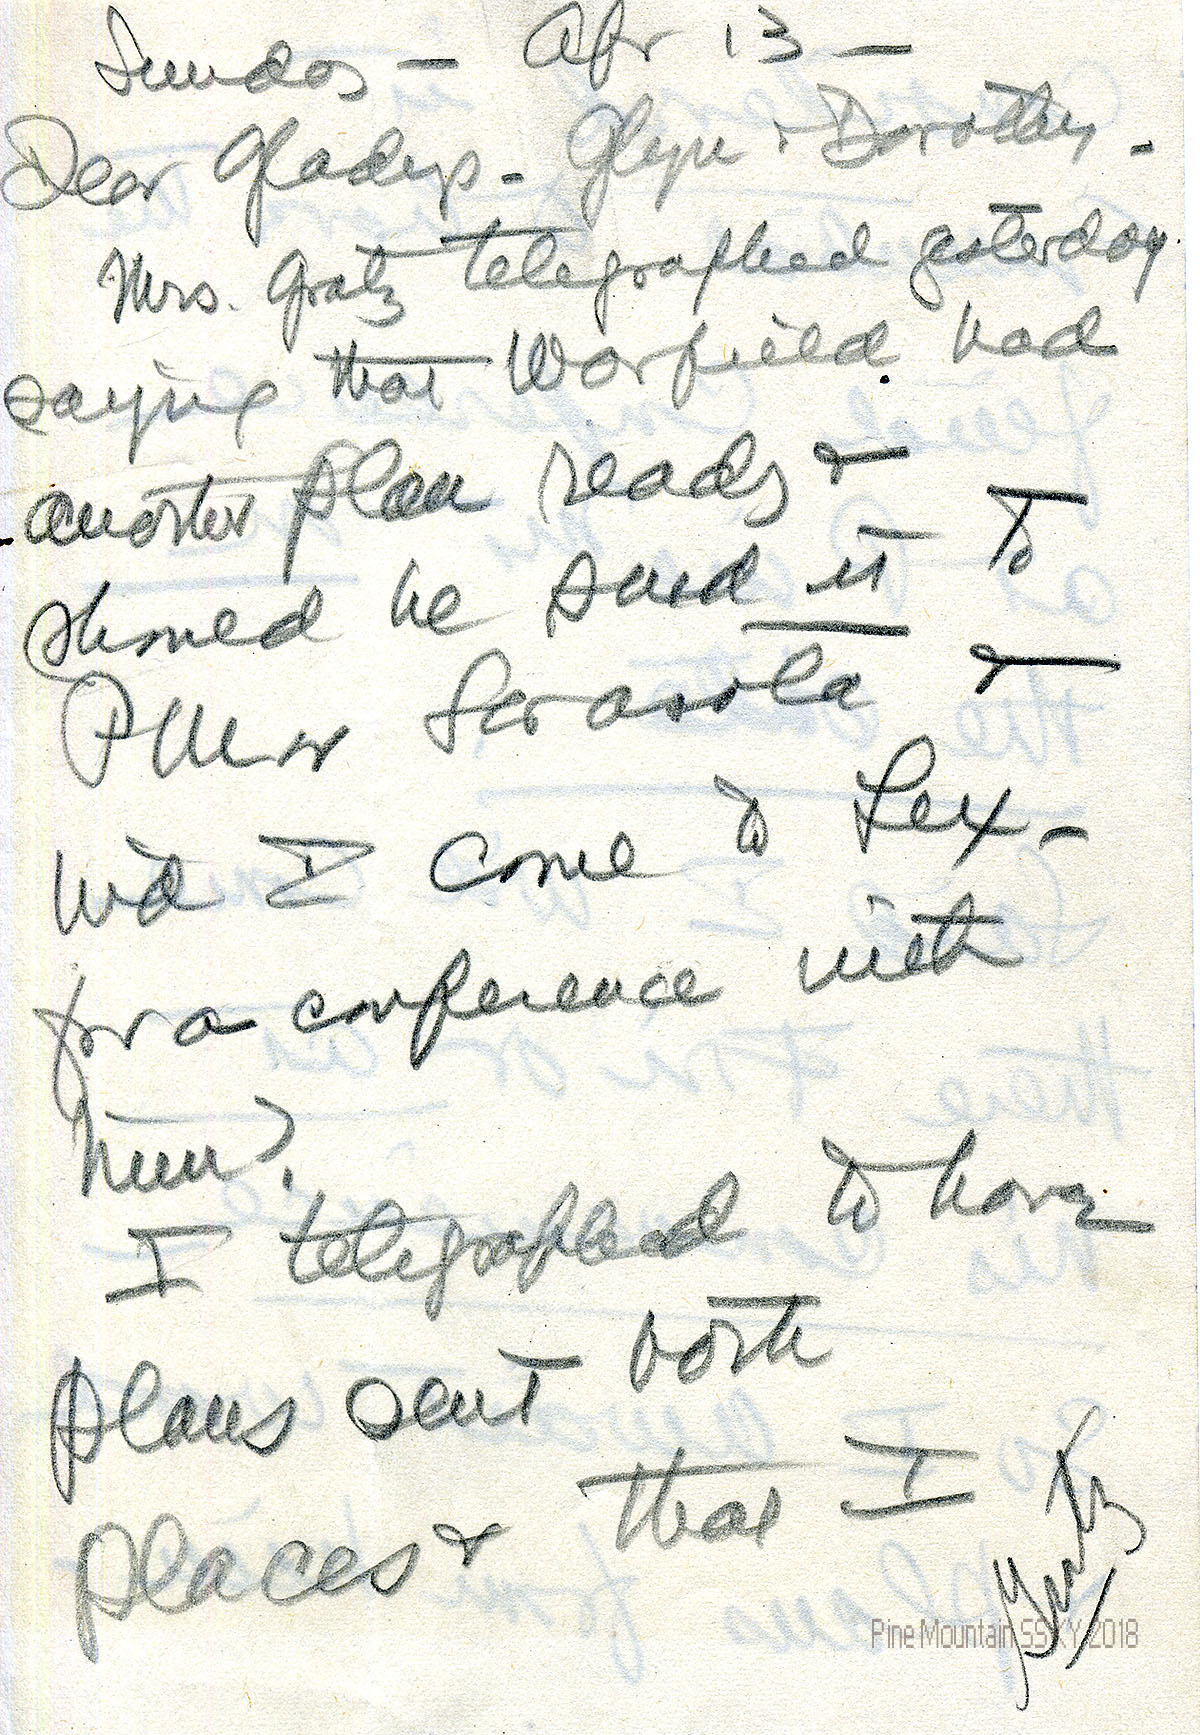 Sunday – Apr 13 –
Dear Gladys – Glyn + Dorothy –
Mrs. Gratz telegraphed yesterday
saying that Warfield had
another plan ready &
should he send it to
Sarasota &
wd I come to Lex –
for a conference with
him?
I telegraphed to have
plans sent both
places & that I
Pine Mountain SS KY 2018